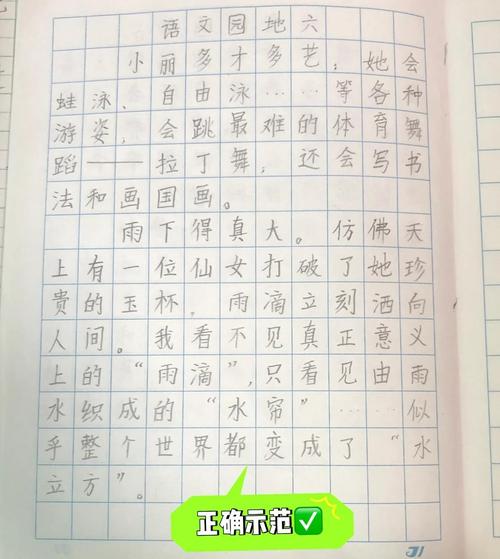 语文园地六
小丽多才多艺，她会
蛙泳、自由泳……等各种
游姿，会跳最难的体育舞
蹈——拉丁舞，还会写书
法和画国画。
雨下得真大。仿佛天
上有一位仙女打破了她珍
贵的玉杯，雨滴立刻洒向
人间。我看不见真正意义
上的“雨滴”，只看见由雨
水织成的“水帘”……似
乎整个世界都变成了“水
立方”。
正确示范✅